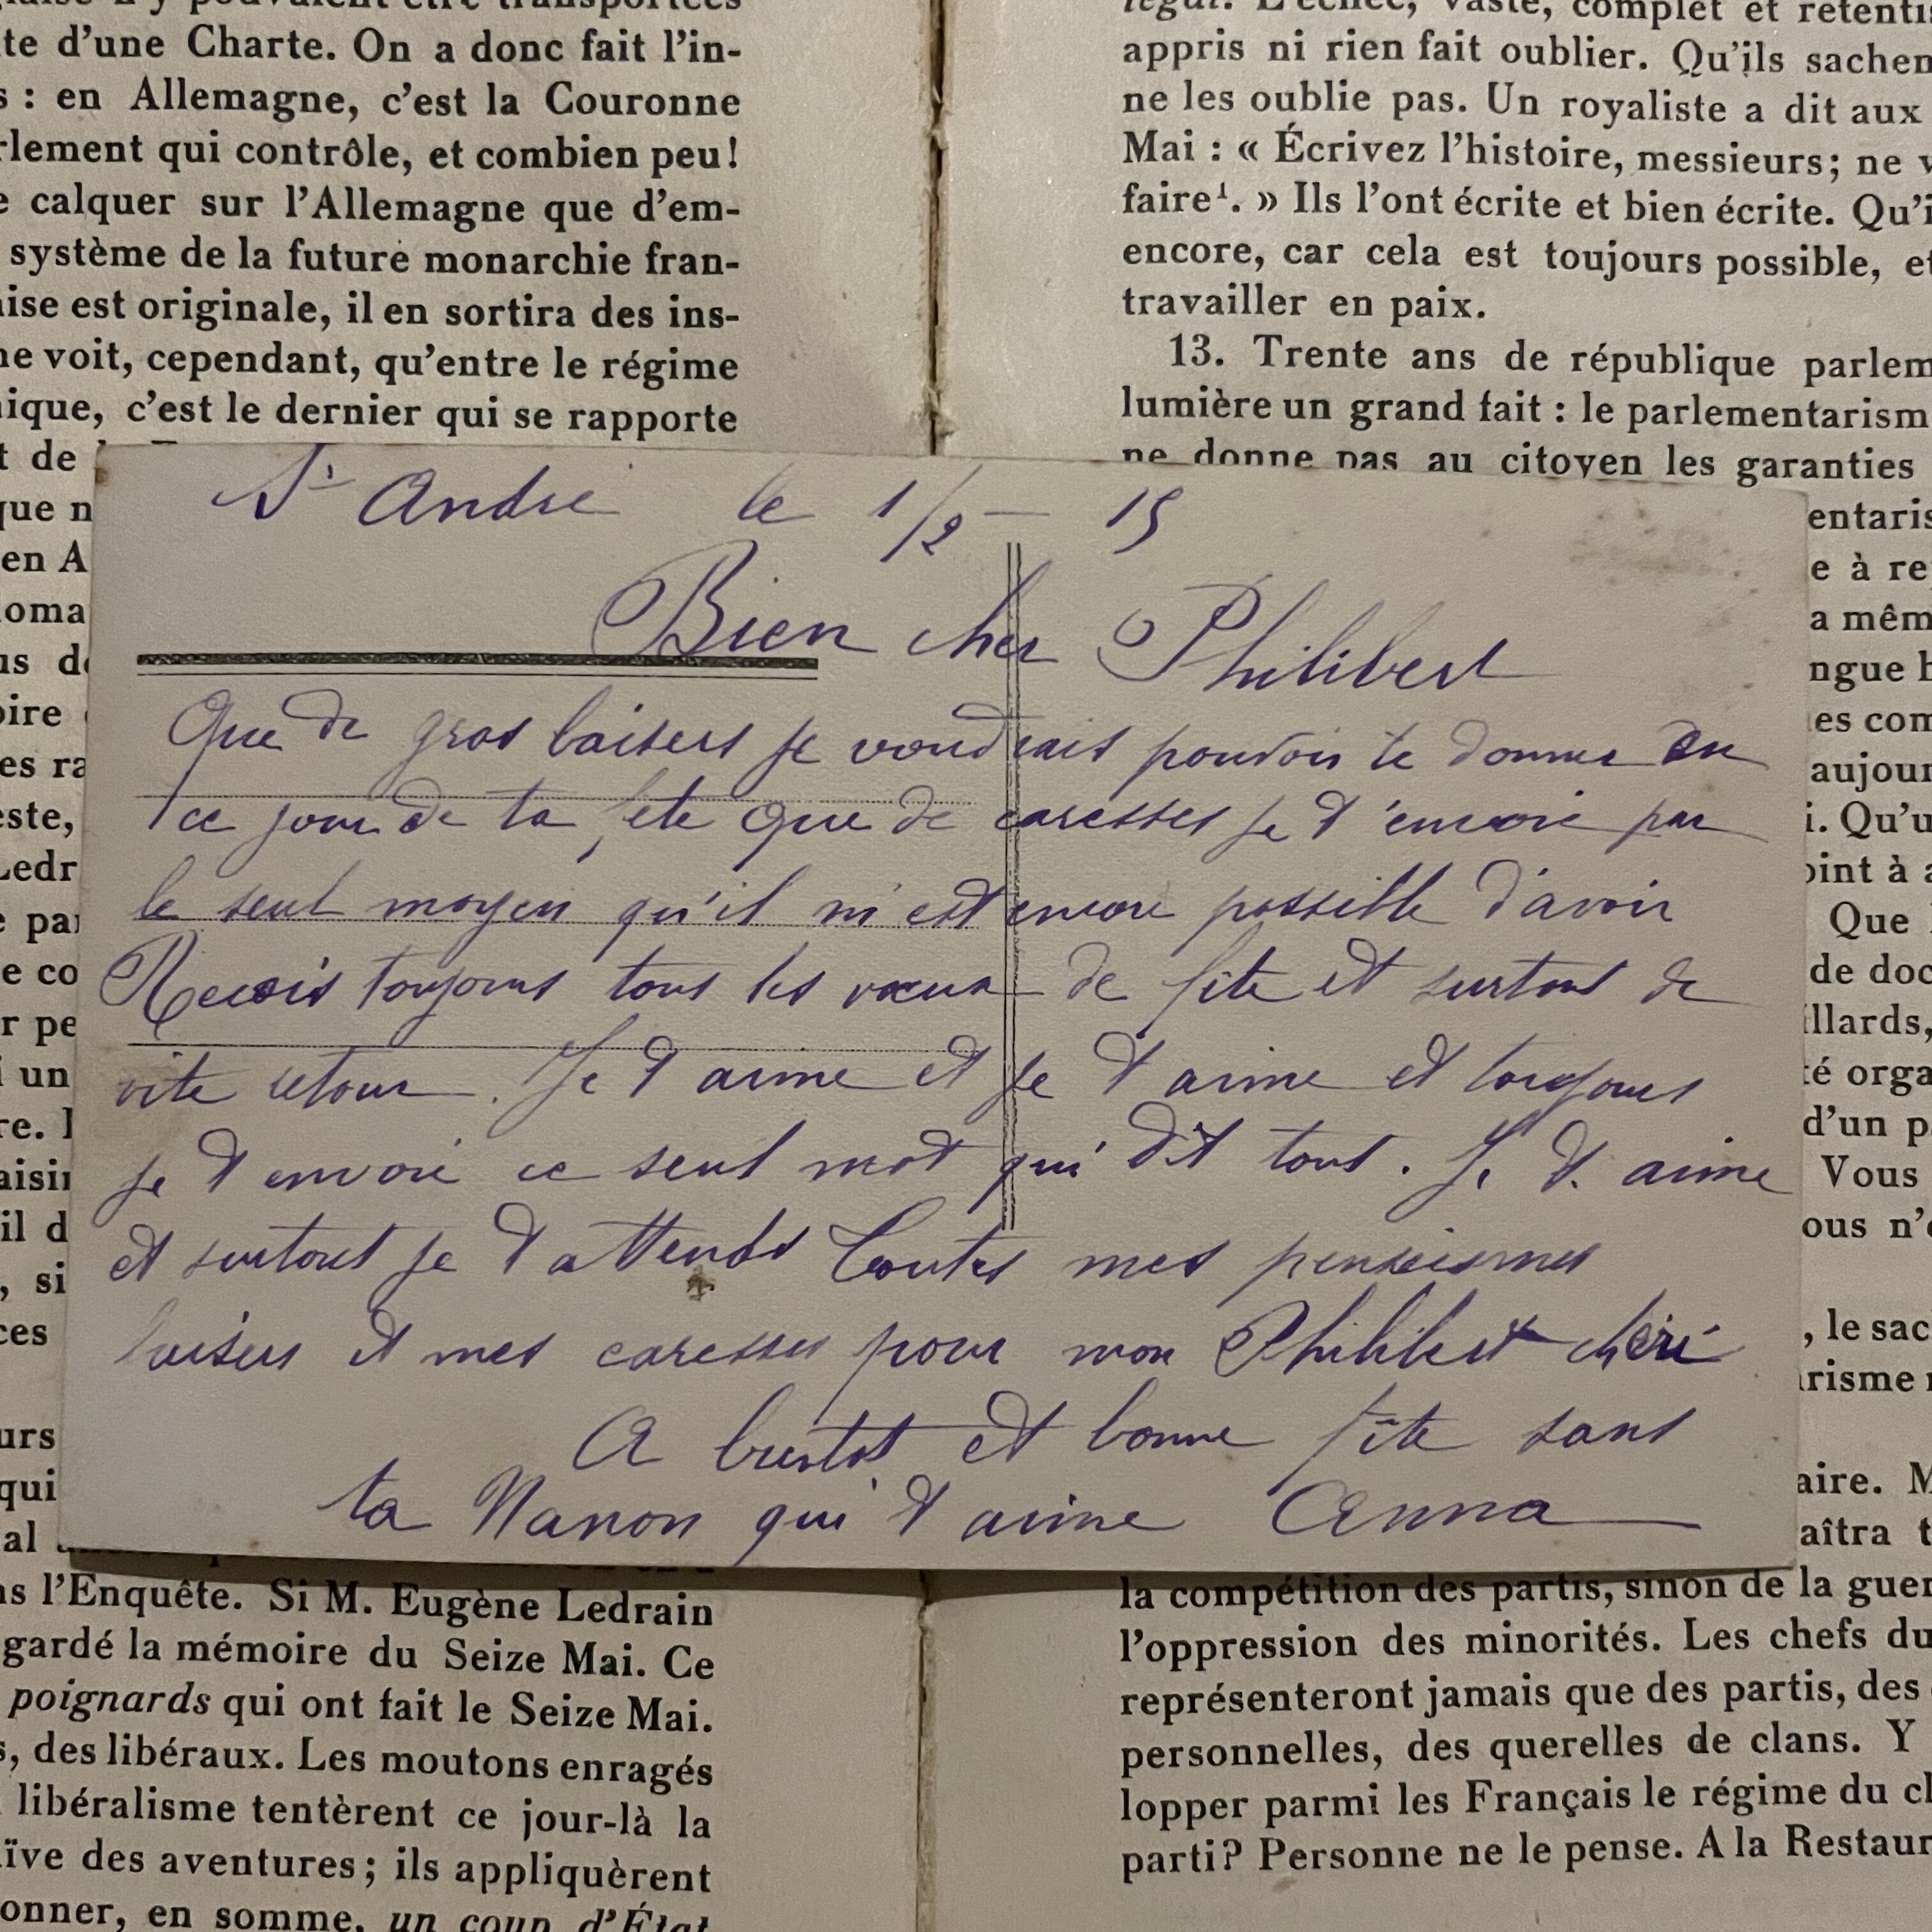 te d'une Charte. On a donc fait l'in-
s : en Allemagne, c'est la Couronne
rlement qui contrôle, et combien peu!
e calquer sur l'Allemagne que d'em-
système de la future monarchie fran-
aise est originale, il en sortira des ins-
ne voit, cependant, qu'entre le régime
nique, c'est le dernier qui se rapporte
légal. L'échec, vaste, complet et retentis
appris ni rien fait oublier. Qu'ils sachen
ne les oublie pas. Un royaliste a dit aux
Mai : « Écrivez l'histoire, messieurs; ne v
faire¹. » Ils l'ont écrite et bien écrite. Qu'i
encore, car cela est toujours possible, et
travailler en paix.
13. Trente ans de république parlem
lumière un grand fait : le parlementarism
ne donne pas au citoyen les garanties
St Andre le 1/2 - 15
Bien cher Philibert
Que de gros baisers je voudrais pouvoir te donner en
ce jour de ta fete Que de caresses je t'envoie par
le seul moyen qu'il m'est encore possible d'avoir
Recois toujours tous les voeux de fête et surtout de
vite retour. Je t aime et je t aime et toujours
je t envoie ce seul mot qui dit tout. Je t. aime
et surtout je t attends Toutes mes
baisers et mes caresses pour mon Philibert chéri
A bientot et bonne fête sans
ta Nanon qui t aime Anna
ns l'Enquête. Si M. Eugène Ledrain
gardé la mémoire du Seize Mai. Ce
poignards qui ont fait le Seize Mai.
s, des libéraux. Les moutons enragés
libéralisme tentèrent ce jour-là la
ïve des aventures; ils appliquèrent
onner, en somme, un coup d'État
la compétition des partis, sinon de la guer
l'oppression des minorités. Les chefs du
représenteront jamais que des partis, des
personnelles, des querelles de clans. Y
lopper parmi les Français le régime du cl
parti? Personne ne le pense. A la Restaur